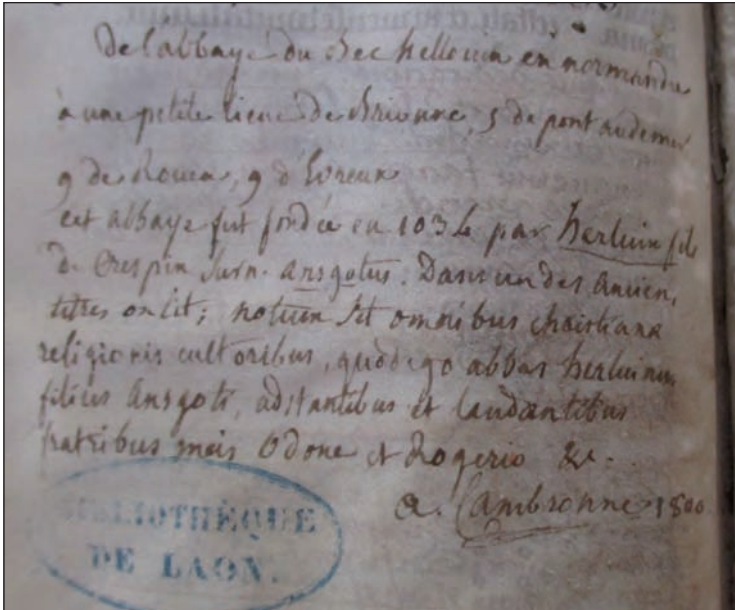 De l'abbaye du Bec hellouin en normandie
à une petite lieue de Brionne, 5 de pont audemer
9 de Rouen, 9 d'Evreux
cet abbaye fut fondée en 1034 par herluin fils
de Crespin surn. ansgotus. Dans un des ancien,
titres on lit; notum sit omnibus christiana
religionis cultoribus, quod ego abbas herluinus
filius ansgoti, adstantibus et laudantibus
fratribus meis Odone et Rogerio &c..
a. Cambronne 1800
BIBLIOTHÈQUE
DE LAON.